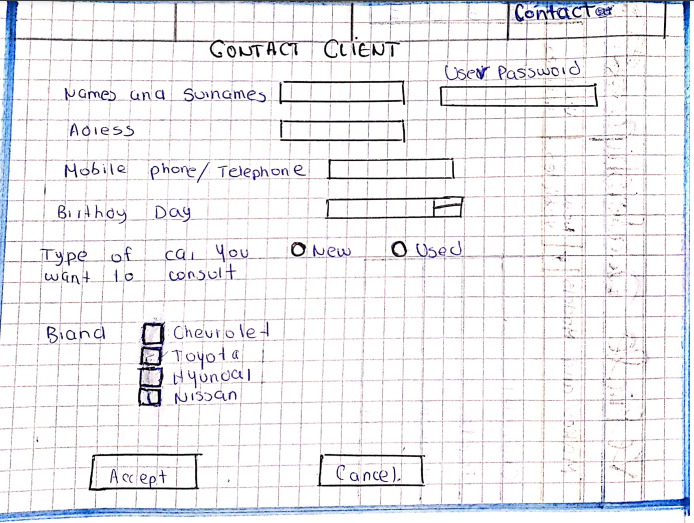 Contact
CONTACT CLIENT
User Password
Names and Surnames
Adress
Mobile phone/ Telephone
Birthdy Day
Type of car you
want to consult
New
Used
Brand
Chevrolet
Toyota
Hyundai
Nissan
Accept
Cancel.